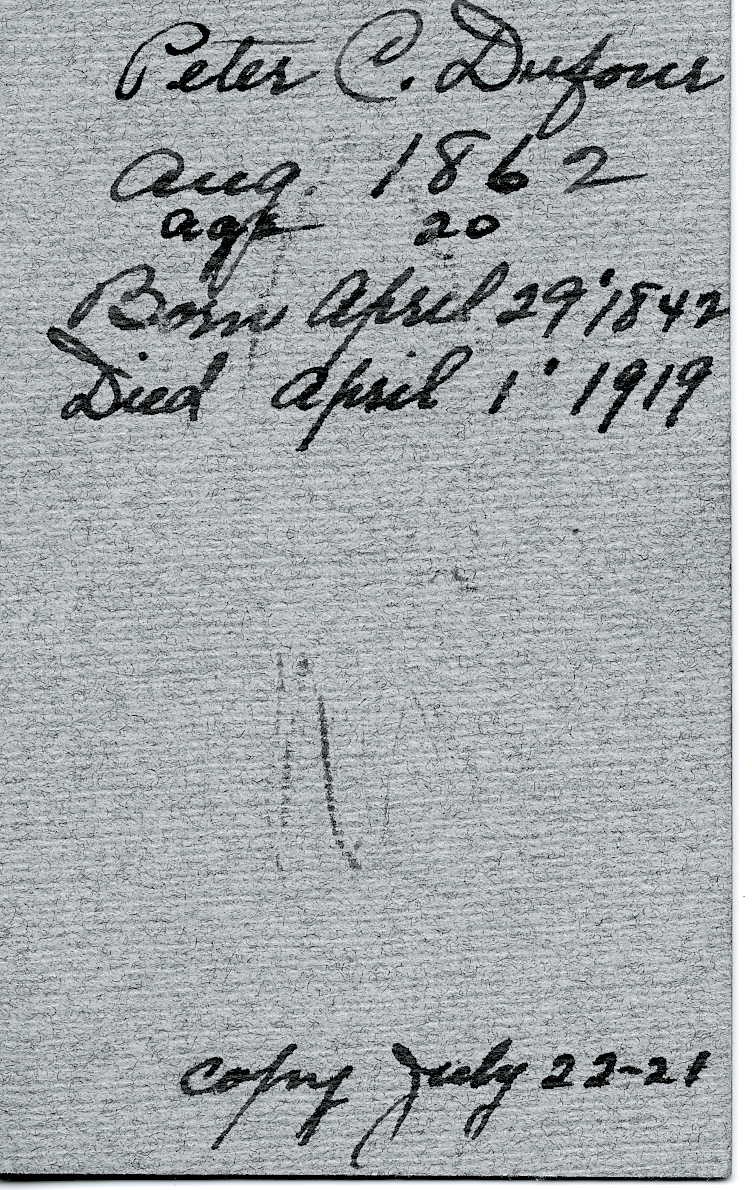 Peter C. Dufour
Aug. 1862
age 20
Born April 29' 1842
Died April 1' 1919
copy July 22-21